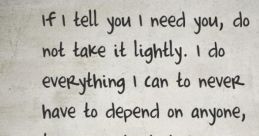 If I tell you I need you, do
not take it lightly. I do
everything I can to never
have to depend on anyone,